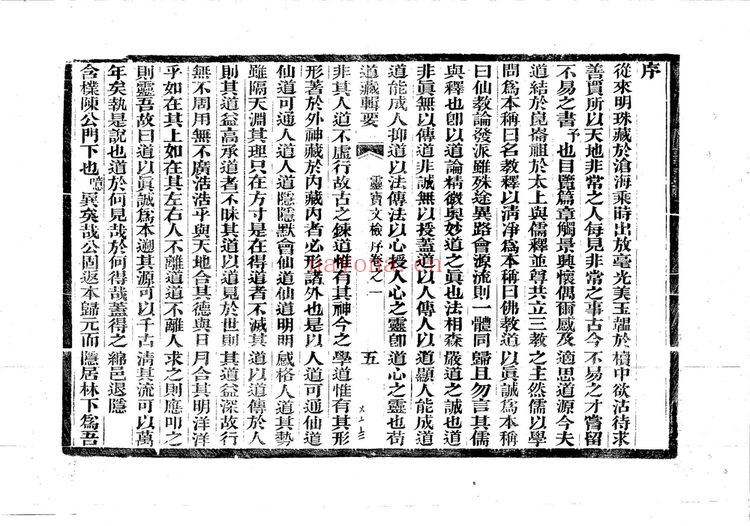 序
從來明珠藏於滄海乘時出放毫光美玉韞於櫝中欲沽待求
善賈所以天地非常之人每見非常之事古今不易之才嘗留
不易之書予也目覽篇章觸景興懷偶爾感及適思道源今夫
道結於崑崙祖於太上與儒釋並尊共立三教之主然儒以學
問為本稱曰名教釋以清淨為本稱曰佛教道以真誠為本稱
曰仙教論發派雖殊途異路會源流則一體同歸且勿言其儒
與釋也卽以道論精微與妙道之真也法相森嚴道之誠也道
非真無以傳道非誠無以授蓋道以人傳人以道顯人能成道
道能成人抑道以法傳法以心授人心之靈卽道心之靈也苟
道藏輯要
靈寶文檢序卷之一
五
非其人道不虛行故古之鍊道惟有其神今之學道惟有其形
形著於外神藏於內藏內者必形諸外也是以人道可通仙道
仙道可通人道人道隱隱默會仙道仙道明明感格人道其勢
雖隔天淵其理只在方寸是在得道者不滅其道以道傳於人
則其道益高承道者不昧其道以道見於世則其道益深故行
無不周用無不廣浩浩乎與天地合其德與日月合其明洋洋
乎如在其上如在其左右人不離道道不離人求之則應叩之
則靈吾故曰道以真誠為本遡其源可以千古清其流可以萬
年矣執是說也道於何見哉於何得哉蓋得之綿邑退隱
含樸陳公門下也噫異矣哉公固返本歸元而隱居林下為吾
nayona.cn